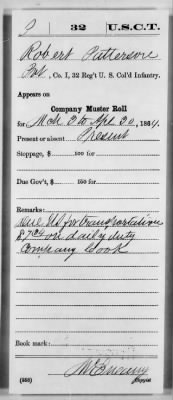 P | 32 | U.S.C.T.
Robert Patterson
Pvt, Co. I, 32 Reg't U. S. Col'd Infantry.
Appears on
Company Muster Roll
for Mch 2 to Apl 30, 1864.
Present or absent Present
Stoppage, $ 100 for
Due Gov't, $ 100 for
Remarks:
Due US for transportation
$7 24/100 on daily duty
Company Cook
Book mark:
(358)
Copyist.